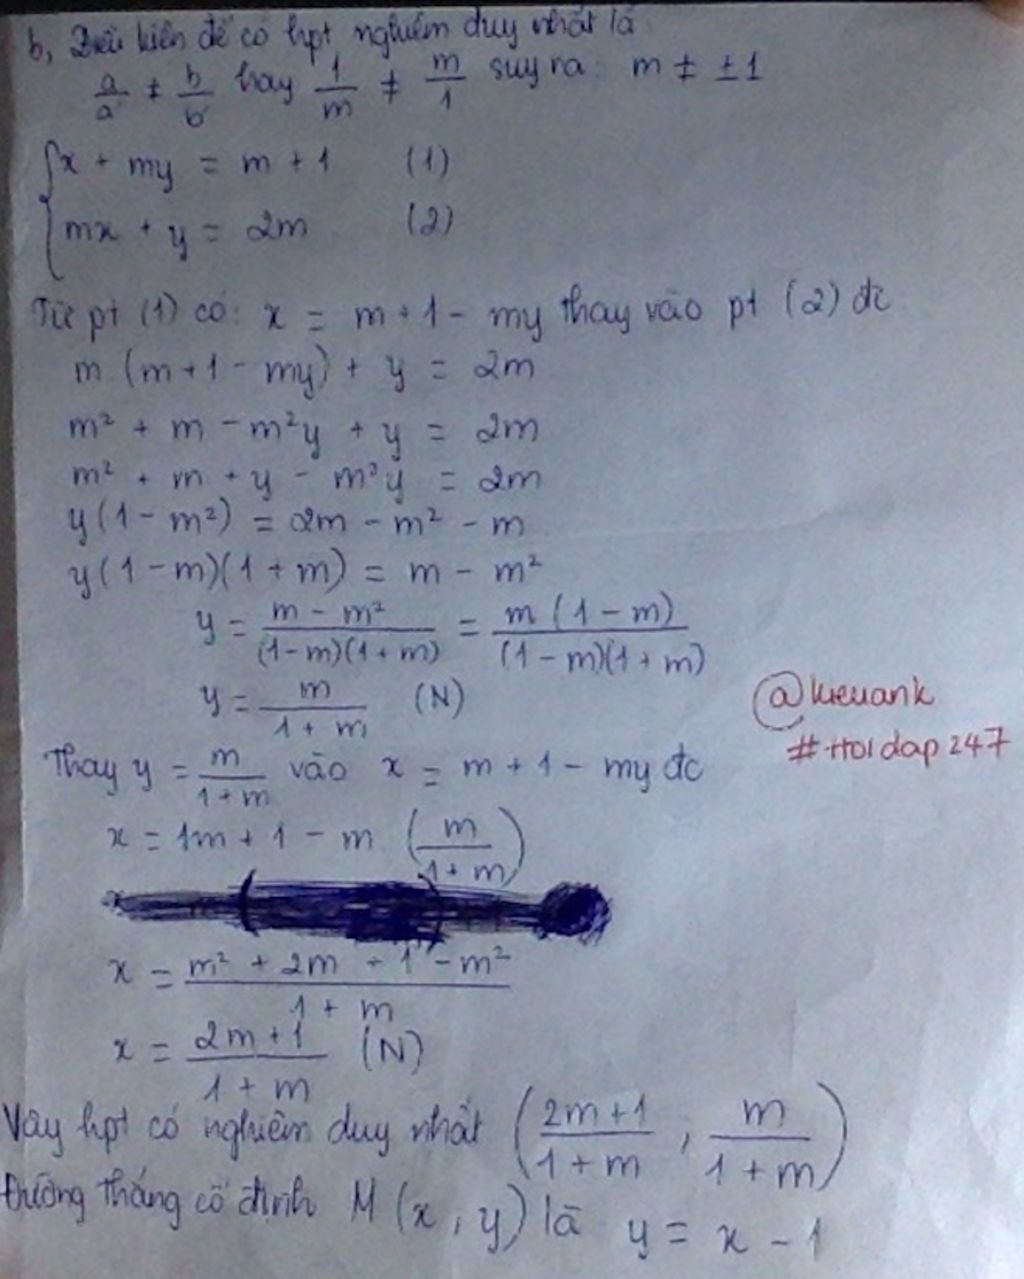 b, Điều kiện để có hpt nghiệm duy nhất là
a/a' ≠ b/b' hay 1/m ≠ m/1 suy ra: m ≠ ±1
{x + my = m + 1 (1)
{mx + y = 2m (2)
Từ pt (1) có: x = m + 1 - my thay vào pt (2) đc
m (m + 1 - my) + y = 2m
m² + m - m²y + y = 2m
m² + m + y - m²y = 2m
y(1 - m²) = 2m - m² - m
y(1 - m)(1 + m) = m - m²
y = (m - m²)/((1-m)(1+m)) = (m(1 - m))/((1 - m)(1 + m))
y = m/(1 + m) (N)
@kieuank
#Hoidap247
Thay y = m/(1+m) vào x = m + 1 - my đc
x = 1m + 1 - m (m/(1+m))
x = (m² + 2m + 1 - m²)/(1 + m)
x = (2m + 1)/(1 + m) (N)
Vậy hpt có nghiệm duy nhất ((2m+1)/(1+m) ; m/(1+m))
Đường thẳng cố định M (x, y) là y = x - 1